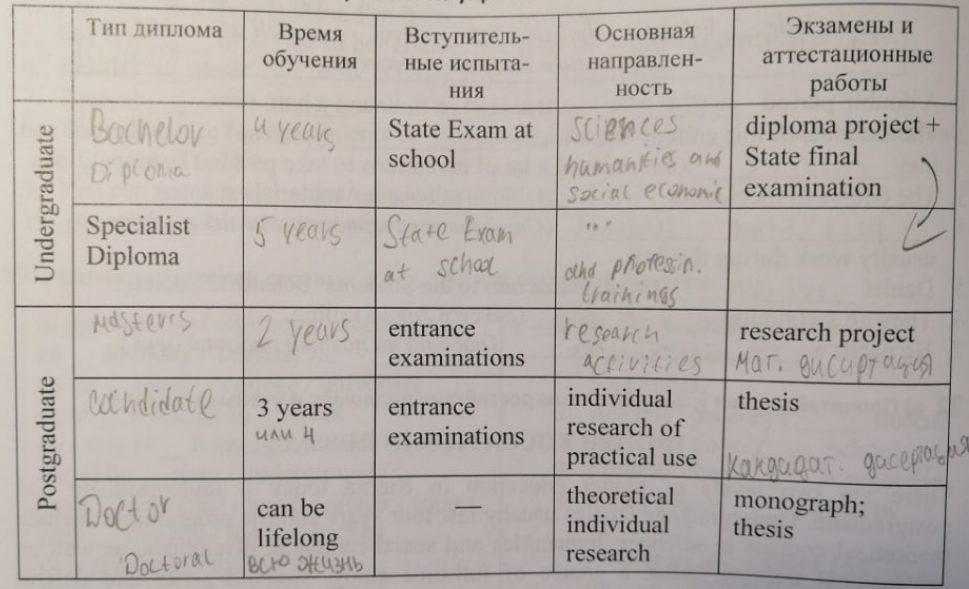 Тип диплома
Время
обучения
Вступитель-
ные испыта-
ния
Основная
направлен-
ность
Экзамены и
аттестационные
работы
Undergraduate
Bachelor
Diploma
4 years
State Exam at
school
sciences
humanities and
social economic
diploma project +
State final
examination
Specialist
Diploma
5 years
State Exam
at school
...
and professin.
trainings
Postgraduate
Masters
2 years
entrance
examinations
research
activities
research project
Маг. дисиртация
candidate
3 years
или 4
entrance
examinations
individual
research of
practical use
thesis
кандидат. дасертация
Doctor
Doctoral
can be
lifelong
всю жизнь
—
theoretical
individual
research
monograph;
thesis